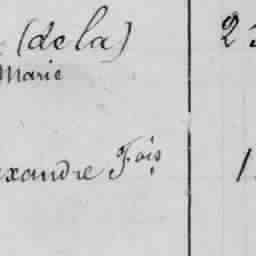 (de la) 2
Marie
exandre Fois 1